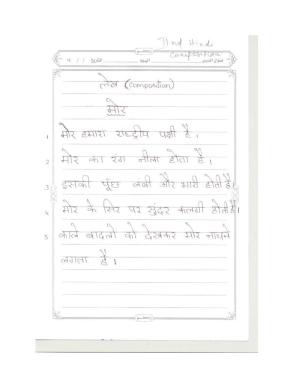 Hindi
Composition
लेख (Composition)
मोर
1 मोर हमारा राष्ट्रीय पक्षी है।
2 मोर का रंग नीला होता है।
3 इसकी पूंछ लंबी और भारी होती है।
4 मोर के सिर पर सुंदर कलगी होती है।
5 काले बादलों को देखकर मोर नाचने
लगता है।